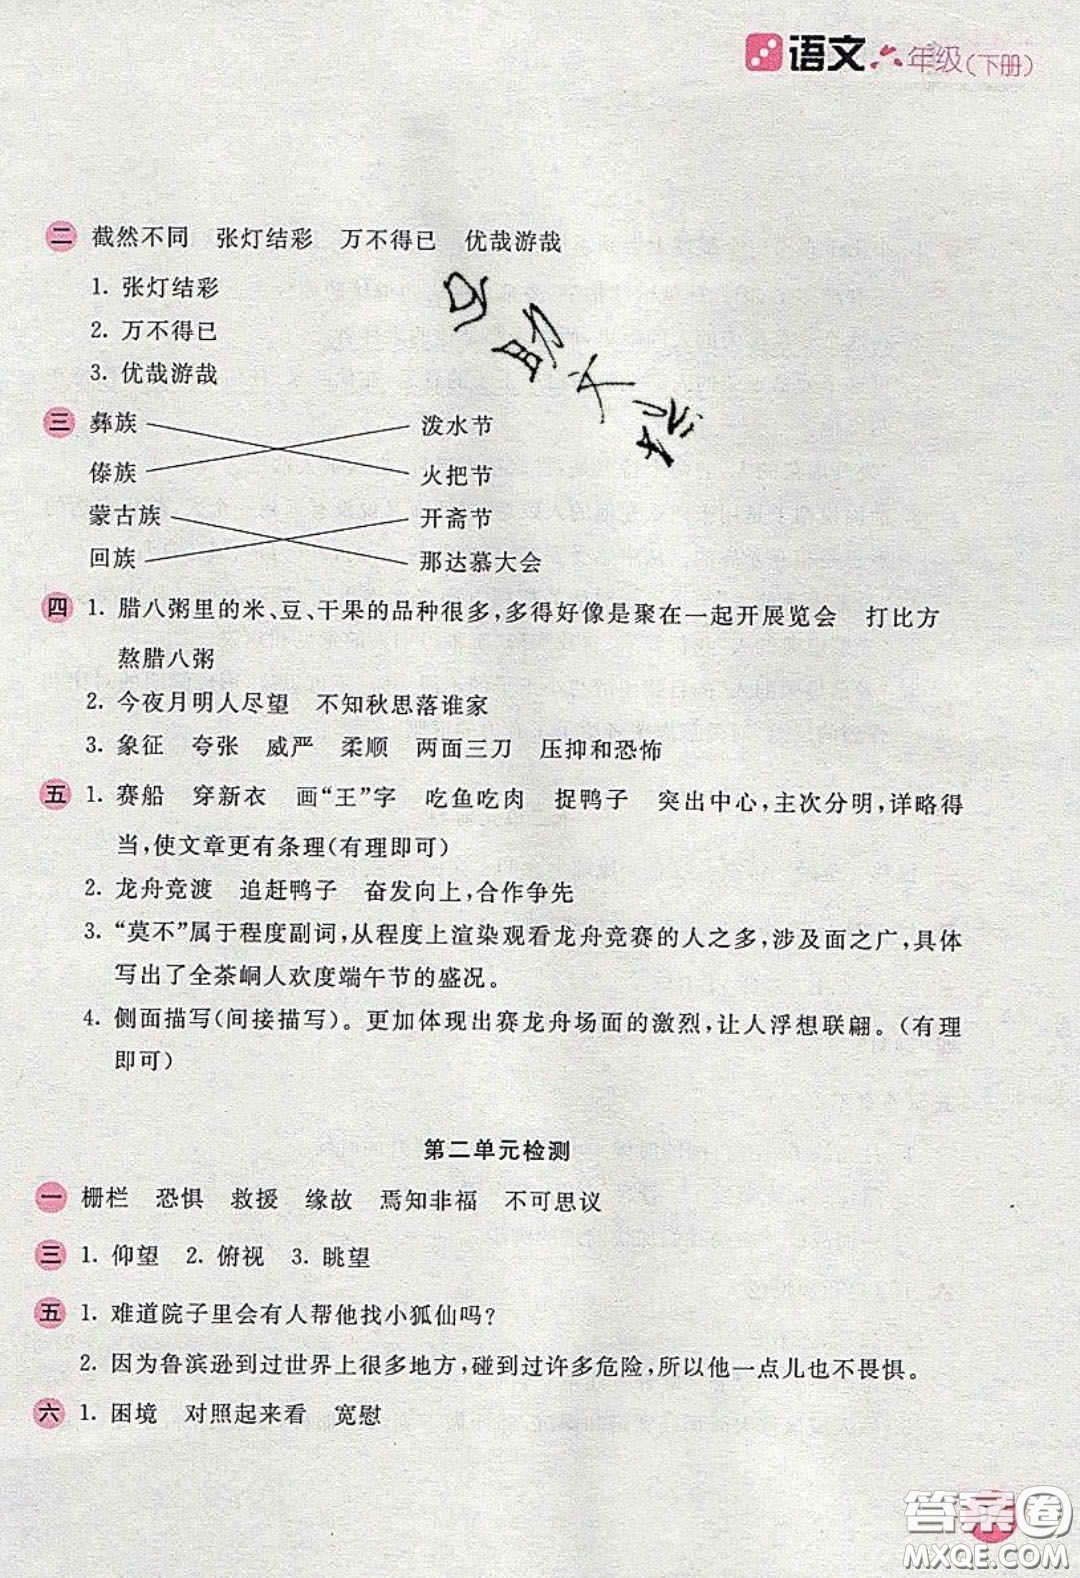 语文六年级(下册)
二 截然不同 张灯结彩 万不得已 优哉游哉
1. 张灯结彩
2. 万不得已
3. 优哉游哉
三 彝族 泼水节
傣族 火把节
蒙古族 开斋节
回族 那达慕大会
四 1. 腊八粥里的米、豆、干果的品种很多,多得好像是聚在一起开展览会 打比方
熬腊八粥
2. 今夜月明人尽望 不知秋思落谁家
3. 象征 夸张 威严 柔顺 两面三刀 压抑和恐怖
五 1. 赛船 穿新衣 画“王”字 吃鱼吃肉 捉鸭子 突出中心,主次分明,详略得
当,使文章更有条理(有理即可)
2. 龙舟竞渡 追赶鸭子 奋发向上,合作争先
3. “莫不”属于程度副词,从程度上渲染观看龙舟竞赛的人之多,涉及面之广,具体
写出了全茶峒人欢度端午节的盛况。
4. 侧面描写(间接描写)。更加体现出赛龙舟场面的激烈,让人浮想联翩。(有理
即可)
第二单元检测
一 栅栏 恐惧 救援 缘故 焉知非福 不可思议
三 1. 仰望 2. 俯视 3. 眺望
五 1. 难道院子里会有人帮他找小狐仙吗?
2. 因为鲁滨逊到过世界上很多地方,碰到过许多危险,所以他一点儿也不畏惧。
六 1. 困境 对照起来看 宽慰
答案圈
MXQE.COM